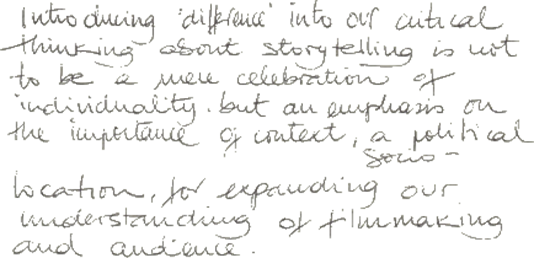 Introducing 'difference' into our critical
thinking about storytelling is not
to be a mere celebration of
individuality. but an emphasis on
the importance of context, a political
socio-
location, for expanding our
understanding of filmmaking
and audience.